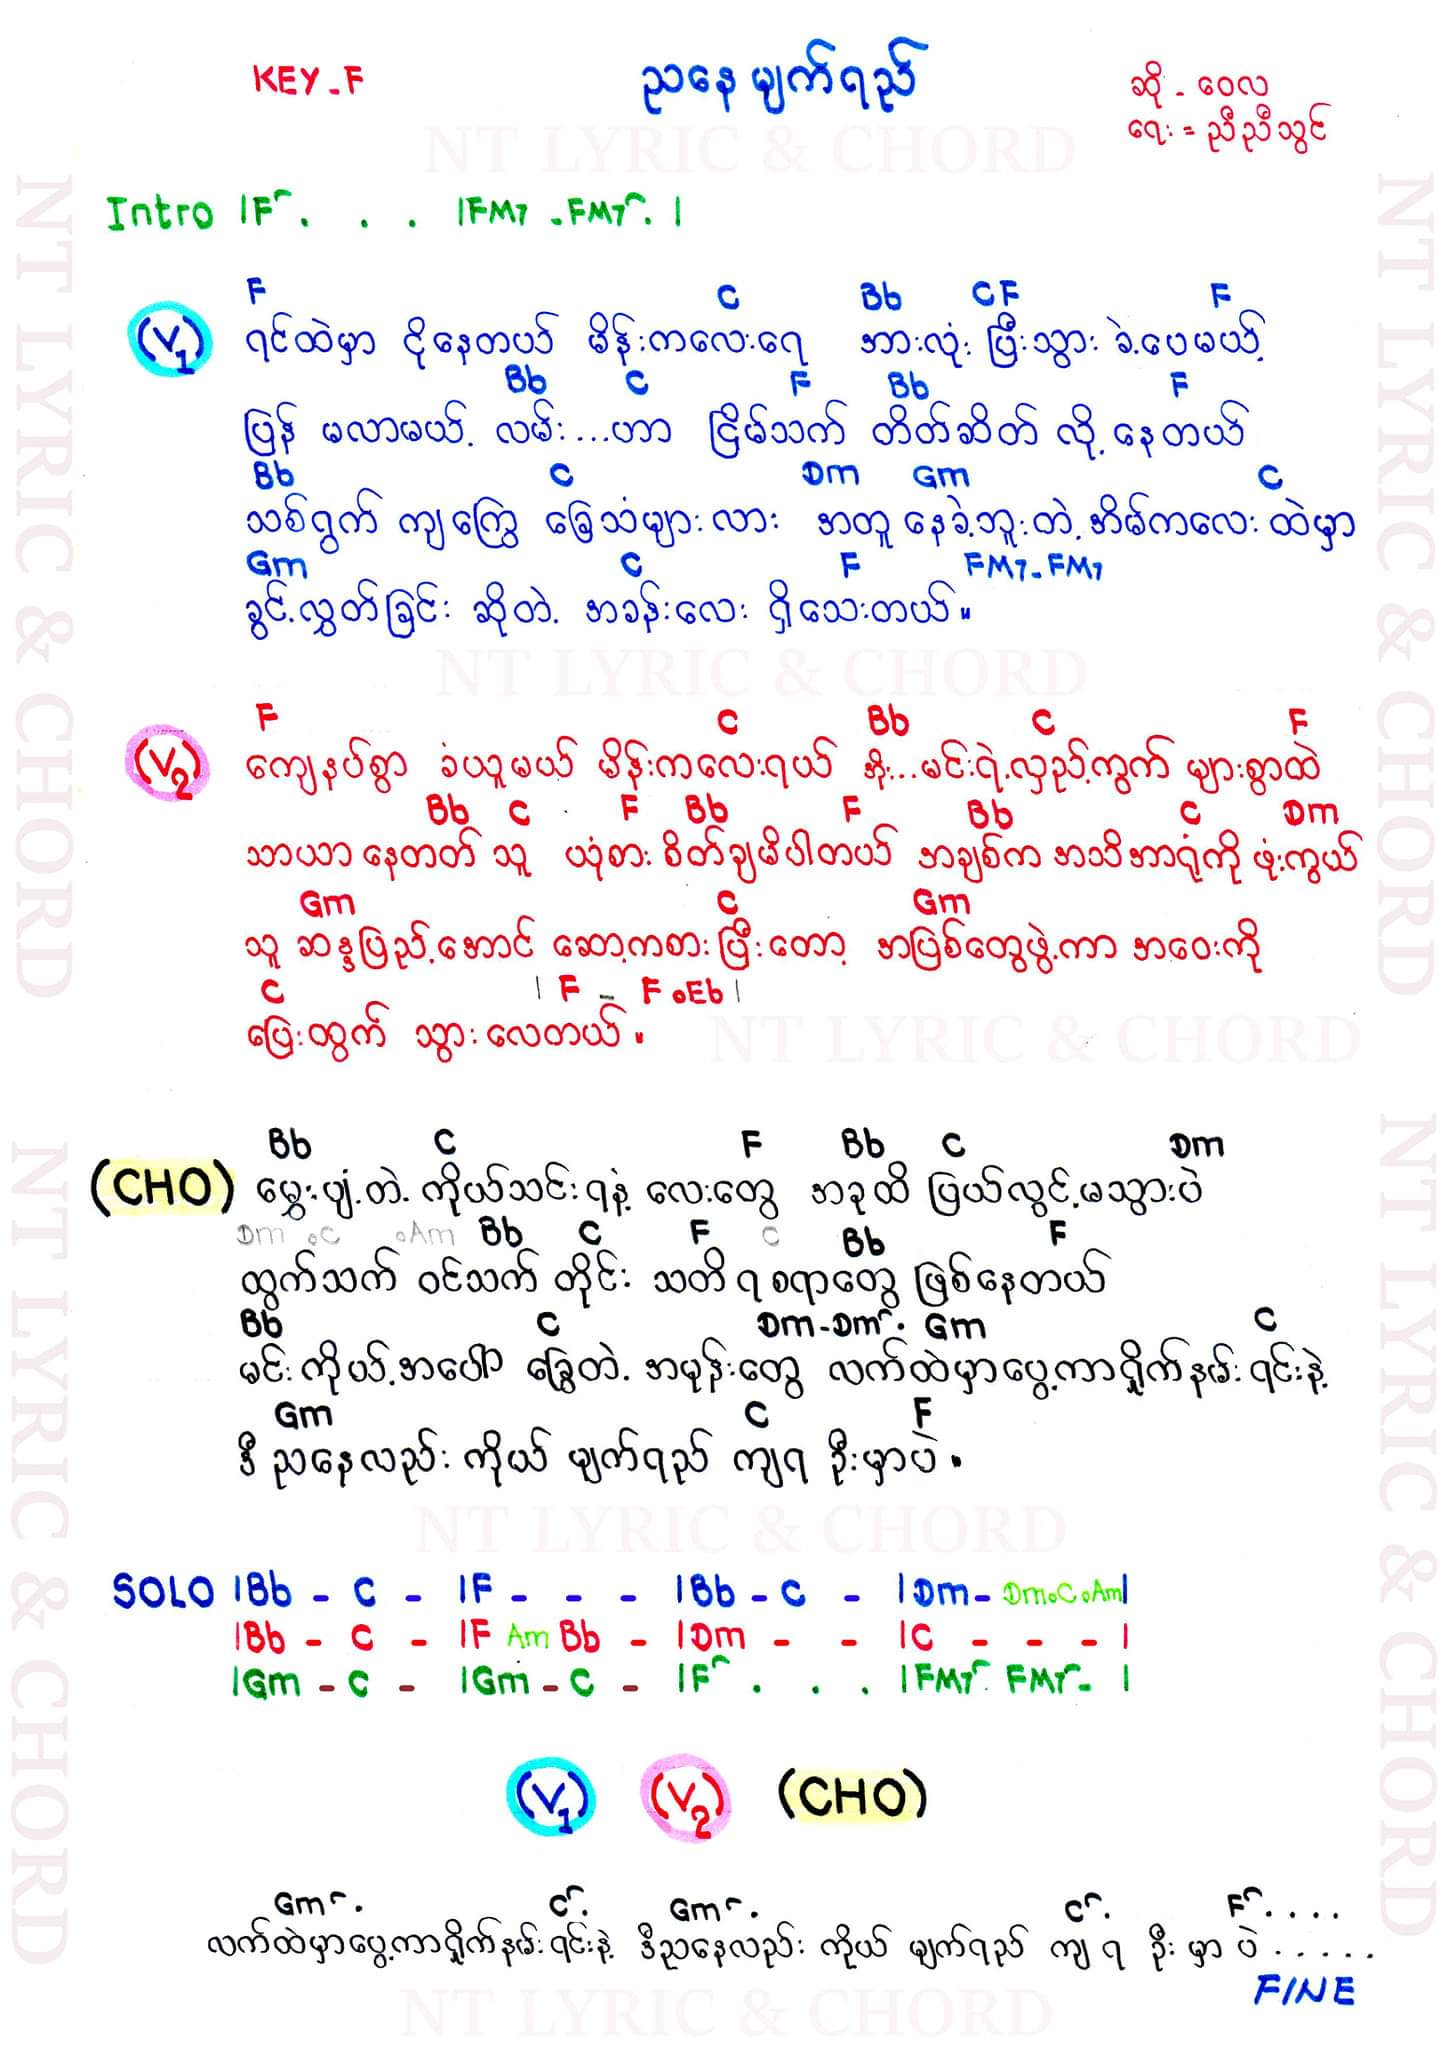 KEY-F ညနေမျက်ရည် ဆို - ဝေလ
ရေး = ညီညီသွင်
NT LYRIC & CHORD
Intro |F . . . |FM7 - FM7 . |
F C Bb C F F
(V1) ရင်ထဲမှာ ငိုနေတယ် မိန်းကလေးရေ အားလုံး ပြီးသွား ခဲ့ပေမယ့်
Bb C F Bb F
ပြန် မလာမယ့် လမ်း...ဟာ ငြိမ်သက် တိတ်ဆိတ် လို့ နေတယ်
Bb C Dm Gm C
သစ်ရွက် ကျကြွေ ခြေသံများလား အတူ နေခဲ့ဘူးတဲ့ အိမ်ကလေး ထဲမှာ
Gm C F FM7 - FM7
ခွင့်လွှတ်ခြင်း ဆိုတဲ့ အခန်းလေး ရှိသေးတယ်။
NT LYRIC & CHORD
F C Bb C F
(V2) ကျေနပ်စွာ ခံယူမယ် မိန်းကလေးရယ် အိုး...မင်းရဲ့လှည့်ကွက် များစွာထဲ
Bb C F Bb F Bb C Dm
သာယာနေတတ် သူ ယုံစား စိတ်ချမိပါတယ် အချစ်က အသိအာရုံကို ဖုံးကွယ်
Gm C Gm
သူ ဆန္ဒပြည့်အောင် ဆော့ကစားပြီးတော့ အပြစ်တွေဖွဲ့ကာ အဝေးကို
C | F - F . Eb |
ပြေးထွက် သွားလေတယ်။
NT LYRIC & CHORD
Bb C F Bb C Dm
(CHO) မွှေးပျံ့တဲ့ ကိုယ်သင်းရနံ့ လေးတွေ အခုထိ ပြယ်လွင့်မသွားပဲ
Dm . C . Am Bb C F C Bb F
ထွက်သက် ဝင်သက် တိုင်း သတိ ရ စရာတွေ ဖြစ်နေတယ်
Bb C Dm - Dm . Gm C
မင်း ကိုယ့်အပေါ် ခြွေတဲ့ အမုန်းတွေ လက်ထဲမှာပွေ့ကာရှိုက်နမ်း ရင်းနဲ့
Gm C F
ဒီ ညနေလည်း ကိုယ် မျက်ရည် ကျရ ဦးမှာပဲ။
NT LYRIC & CHORD
SOLO |Bb - C - |F - - - |Bb - C - |Dm - Dm.C.Am|
|Bb - C - |F Am Bb - |Dm - - |C - - - |
|Gm - C - |Gm - C - |F . . . |FM7 FM7 - |
(V1) (V2) (CHO)
Gm . C . Gm . C . F . . . .
လက်ထဲမှာပွေ့ကာရှိုက်နမ်း ရင်းနဲ့ ဒီညနေလည်း ကိုယ် မျက်ရည် ကျ ရ ဦး မှာ ပဲ . . . . . .
FINE
NT LYRIC & CHORD
NT LYRIC & CHORD
NT LYRIC & CHORD
NT LYRIC & CHORD
NT LYRIC & CHORD